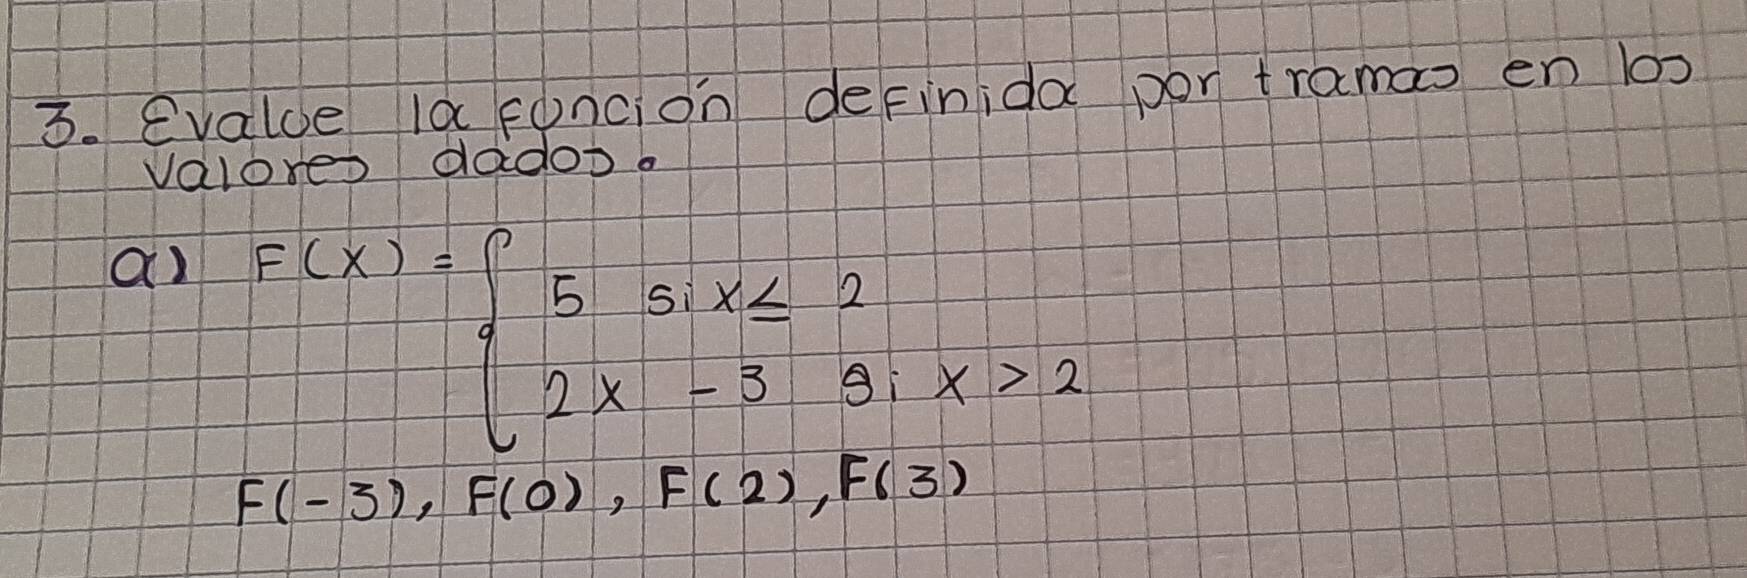 3. Evalue la función definida por tramos en los
valores dados.
a) F(x) = { 5 si x ≤ 2
2x - 3 si x > 2
F(-3), F(0), F(2), F(3)